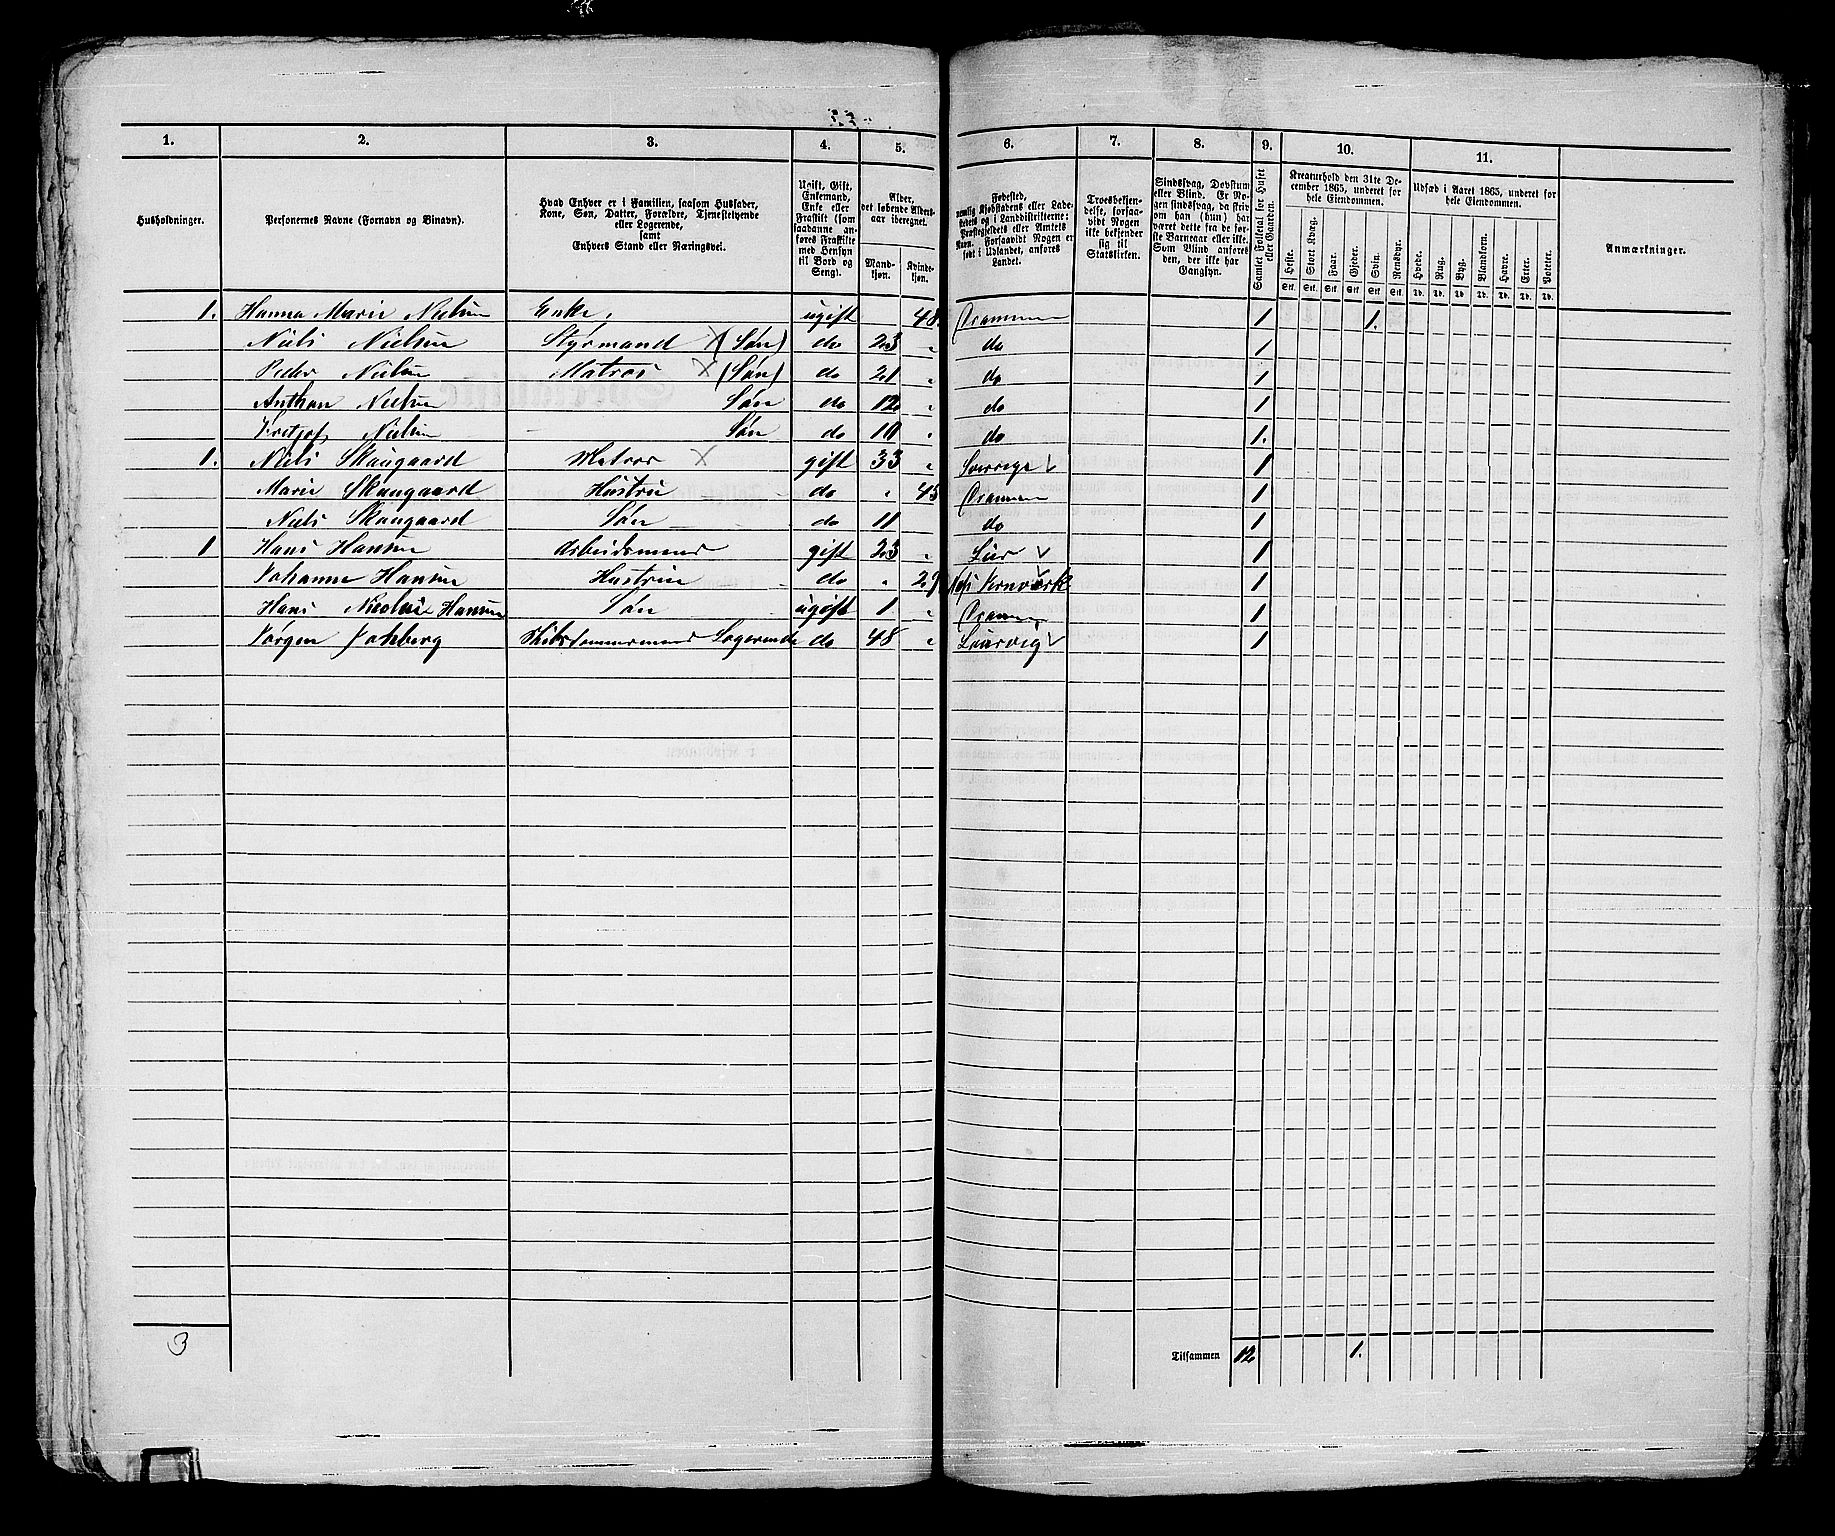 1. 2. 3. 4. 5. 6. 7. 8. 9. 10. 11.
Husholdninger.
Personernes Navne (Fornavn og Binavn).
Hvad Enhver er i Familien, saasom Husfader,
Kone, Søn, Datter, Forældre, Tjenestetyende
eller Logerende,
samt
Enhvers Stand eller Næringsvei.
Ugift, Gift,
Enkemand,
Enke eller
Fraskilt (som
saadanne an-
føres Fraskilte
med Hensyn
til Bord og
Seng).
Alder,
det løbende Alders-
aar iberegnet.
Mand-
kjøn.
Kvinde-
kjøn.
Fødested,
nemlig Kjøbstadens eller Lade-
stedets og i Landdistrikterne:
Præstegjeldets eller Amtets
Navn. Forsaavidt Nogen er
født i Udlandet, anføres
Landet.
Troesbekjen-
delse, forsaa-
vidt Nogen
ikke bekjender
sig til
Statskirken.
Sindssvag, Døvstum
eller Blind. Er No-
gen sindssvag, da skriv
om han (hun) har
været dette fra de før-
ste Barneaar eller ikke.
Som Blind anføres
den, der ikke har
Gangsyn.
Samlet Folketal for Huset
eller Gaarden.
Kreaturhold den 31te De-
cember 1865, underet for
hele Eiendommen.
Heste. Stort Kvæg. Faar. Gjeder. Svin. Rensdyr.
Stk. Stk. Stk. Stk. Stk. Stk.
Udsæd i Aaret 1865, underet for
hele Eiendommen.
Hvede. Rug. Byg. Blandkorn. Havre. Erter. Poteter.
Td. Td. Td. Td. Td. Td. Td.
Anmærkninger.
1. Hanna Marie Nielsen Enke, ugift 48. Drammen 1 1.
Niels Nielsen Styrmand X (Søn) do 23 " do 1
Peder Nielsen Matros X (Søn) do 21 " do 1
Anthon Nielsen Søn do 12 " do 1
Fritjof Nielsen Søn do 10 " do 1.
1. Niels Skaugaard Matros X gift 33 " Sverrige 1
Marie Skaugaard Hustru do " 45 Drammen 1
Niels Skaugaard Søn do 11 do 1
1 Hans Hansen Arbeidsmand gift 23 " Lier 1
Johanne Hansen Hustru do " 29 1
Hans Nicolai Hansen Søn ugift 1 " Drammen 1
Jørgen Skibstømmermand Logerende do 48 " Laurvig 1
3
Tilsammen 12 1.